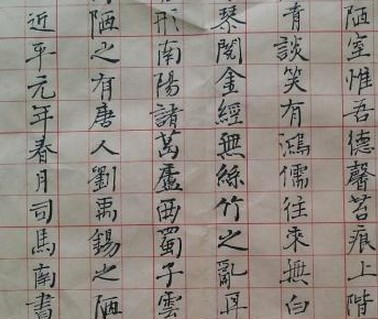 陋室惟吾德馨苔痕上階
青談笑有鴻儒往來無白
琴閱金經無絲竹之亂耳
形南陽諸葛廬西蜀子雲
陋之有唐人劉禹錫之陋
近平元年春月司馬南書